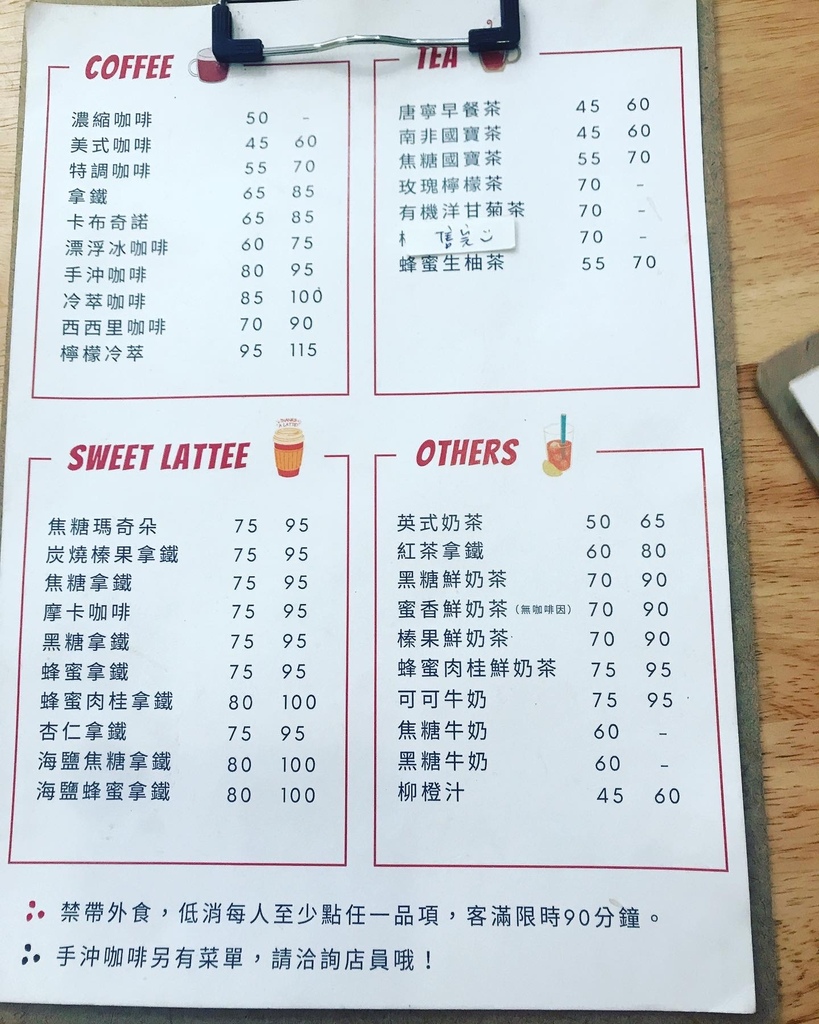 COFFEE
濃縮咖啡 50 -
美式咖啡 45 60
特調咖啡 55 70
拿鐵 65 85
卡布奇諾 65 85
漂浮冰咖啡 60 75
手沖咖啡 80 95
冷萃咖啡 85 100
西西里咖啡 70 90
檸檬冷萃 95 115
TEA
唐寧早餐茶 45 60
南非國寶茶 45 60
焦糖國寶茶 55 70
玫瑰檸檬茶 70 -
有機洋甘菊茶 70 -
售完 70 -
蜂蜜生柚茶 55 70
SWEET LATTEE
焦糖瑪奇朵 75 95
炭燒榛果拿鐵 75 95
焦糖拿鐵 75 95
摩卡咖啡 75 95
黑糖拿鐵 75 95
蜂蜜拿鐵 75 95
蜂蜜肉桂拿鐵 80 100
杏仁拿鐵 75 95
海鹽焦糖拿鐵 80 100
海鹽蜂蜜拿鐵 80 100
OTHERS
英式奶茶 50 65
紅茶拿鐵 60 80
黑糖鮮奶茶 70 90
蜜香鮮奶茶（無咖啡因） 70 90
榛果鮮奶茶 70 90
蜂蜜肉桂鮮奶茶 75 95
可可牛奶 75 95
焦糖牛奶 60 -
黑糖牛奶 60 -
柳橙汁 45 60
禁帶外食，低消每人至少點任一品項，客滿限時90分鐘。
手沖咖啡另有菜單，請洽詢店員哦！